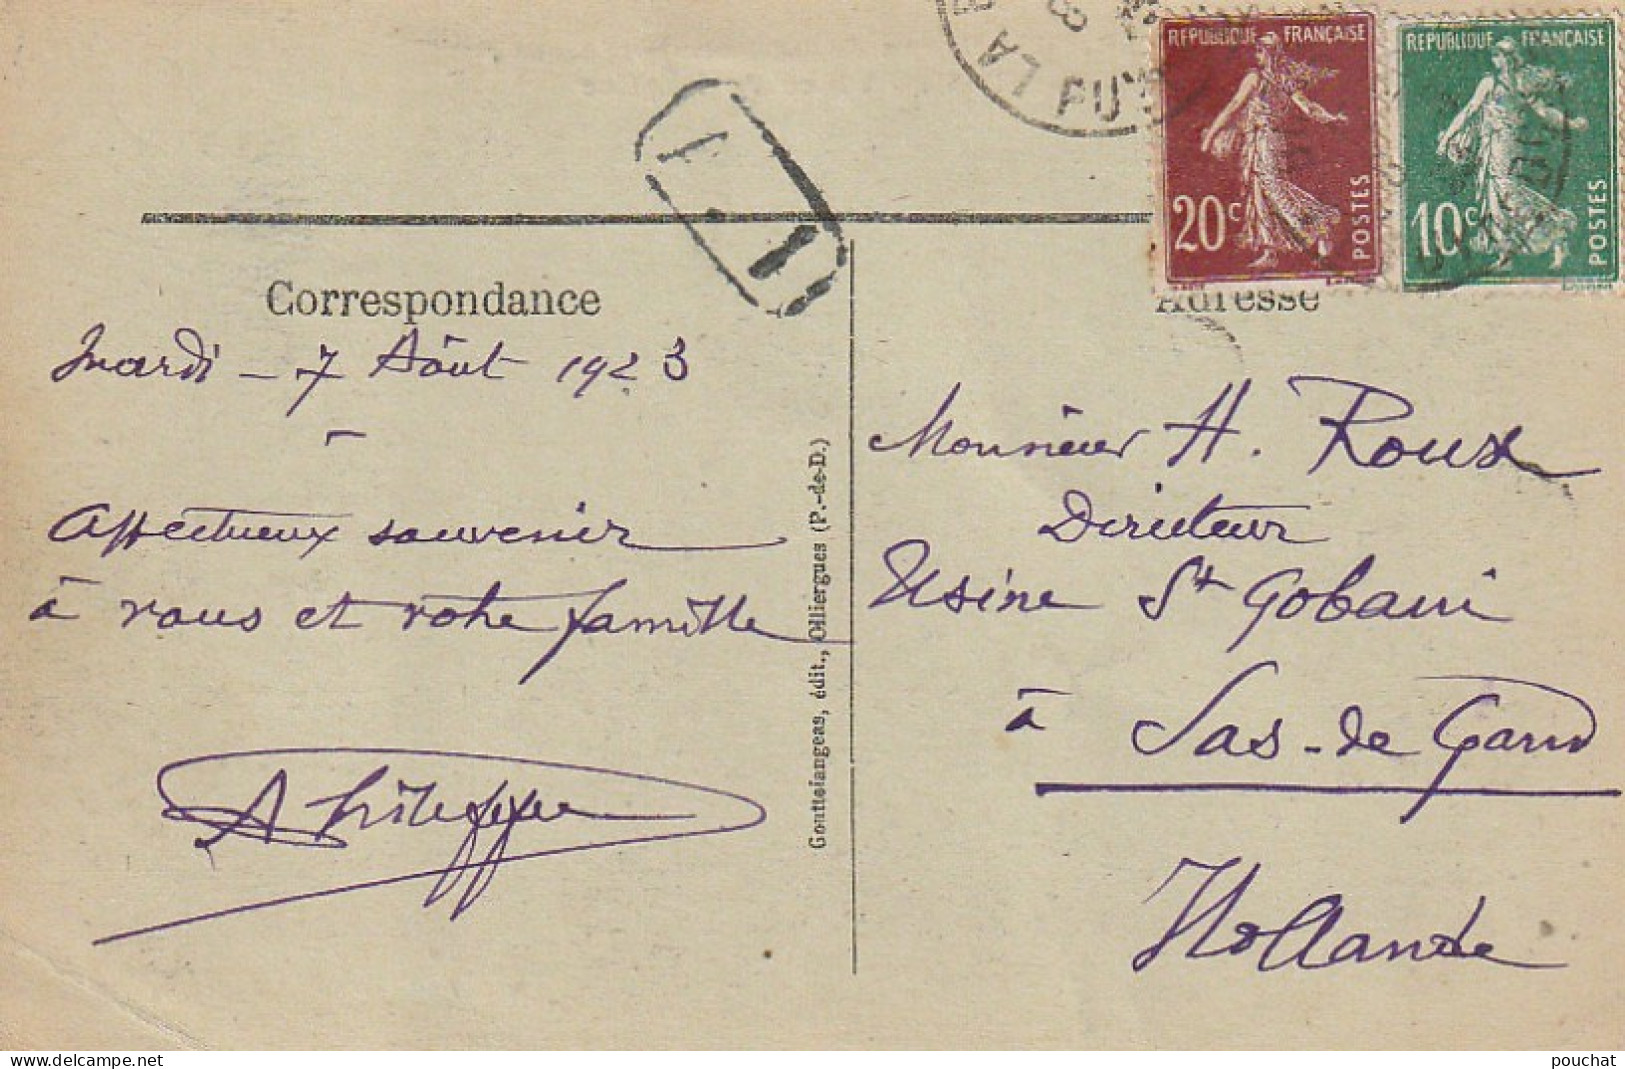 LA
PUY
RÉPUBLIQUE FRANÇAISE
20c
POSTES
RÉPUBLIQUE FRANÇAISE
10c
POSTES
Correspondance
Adresse
Mardi - 7 Août 1923
Affectueux souvenir
à vous et votre famille
Gouttefangeas, édit., Olliergues (P.-de-D.)
Monsieur H. Roux
Directeur
Usine St Gobain
à Sas-de Gand
Hollande
www.delcampe.net
pouchat